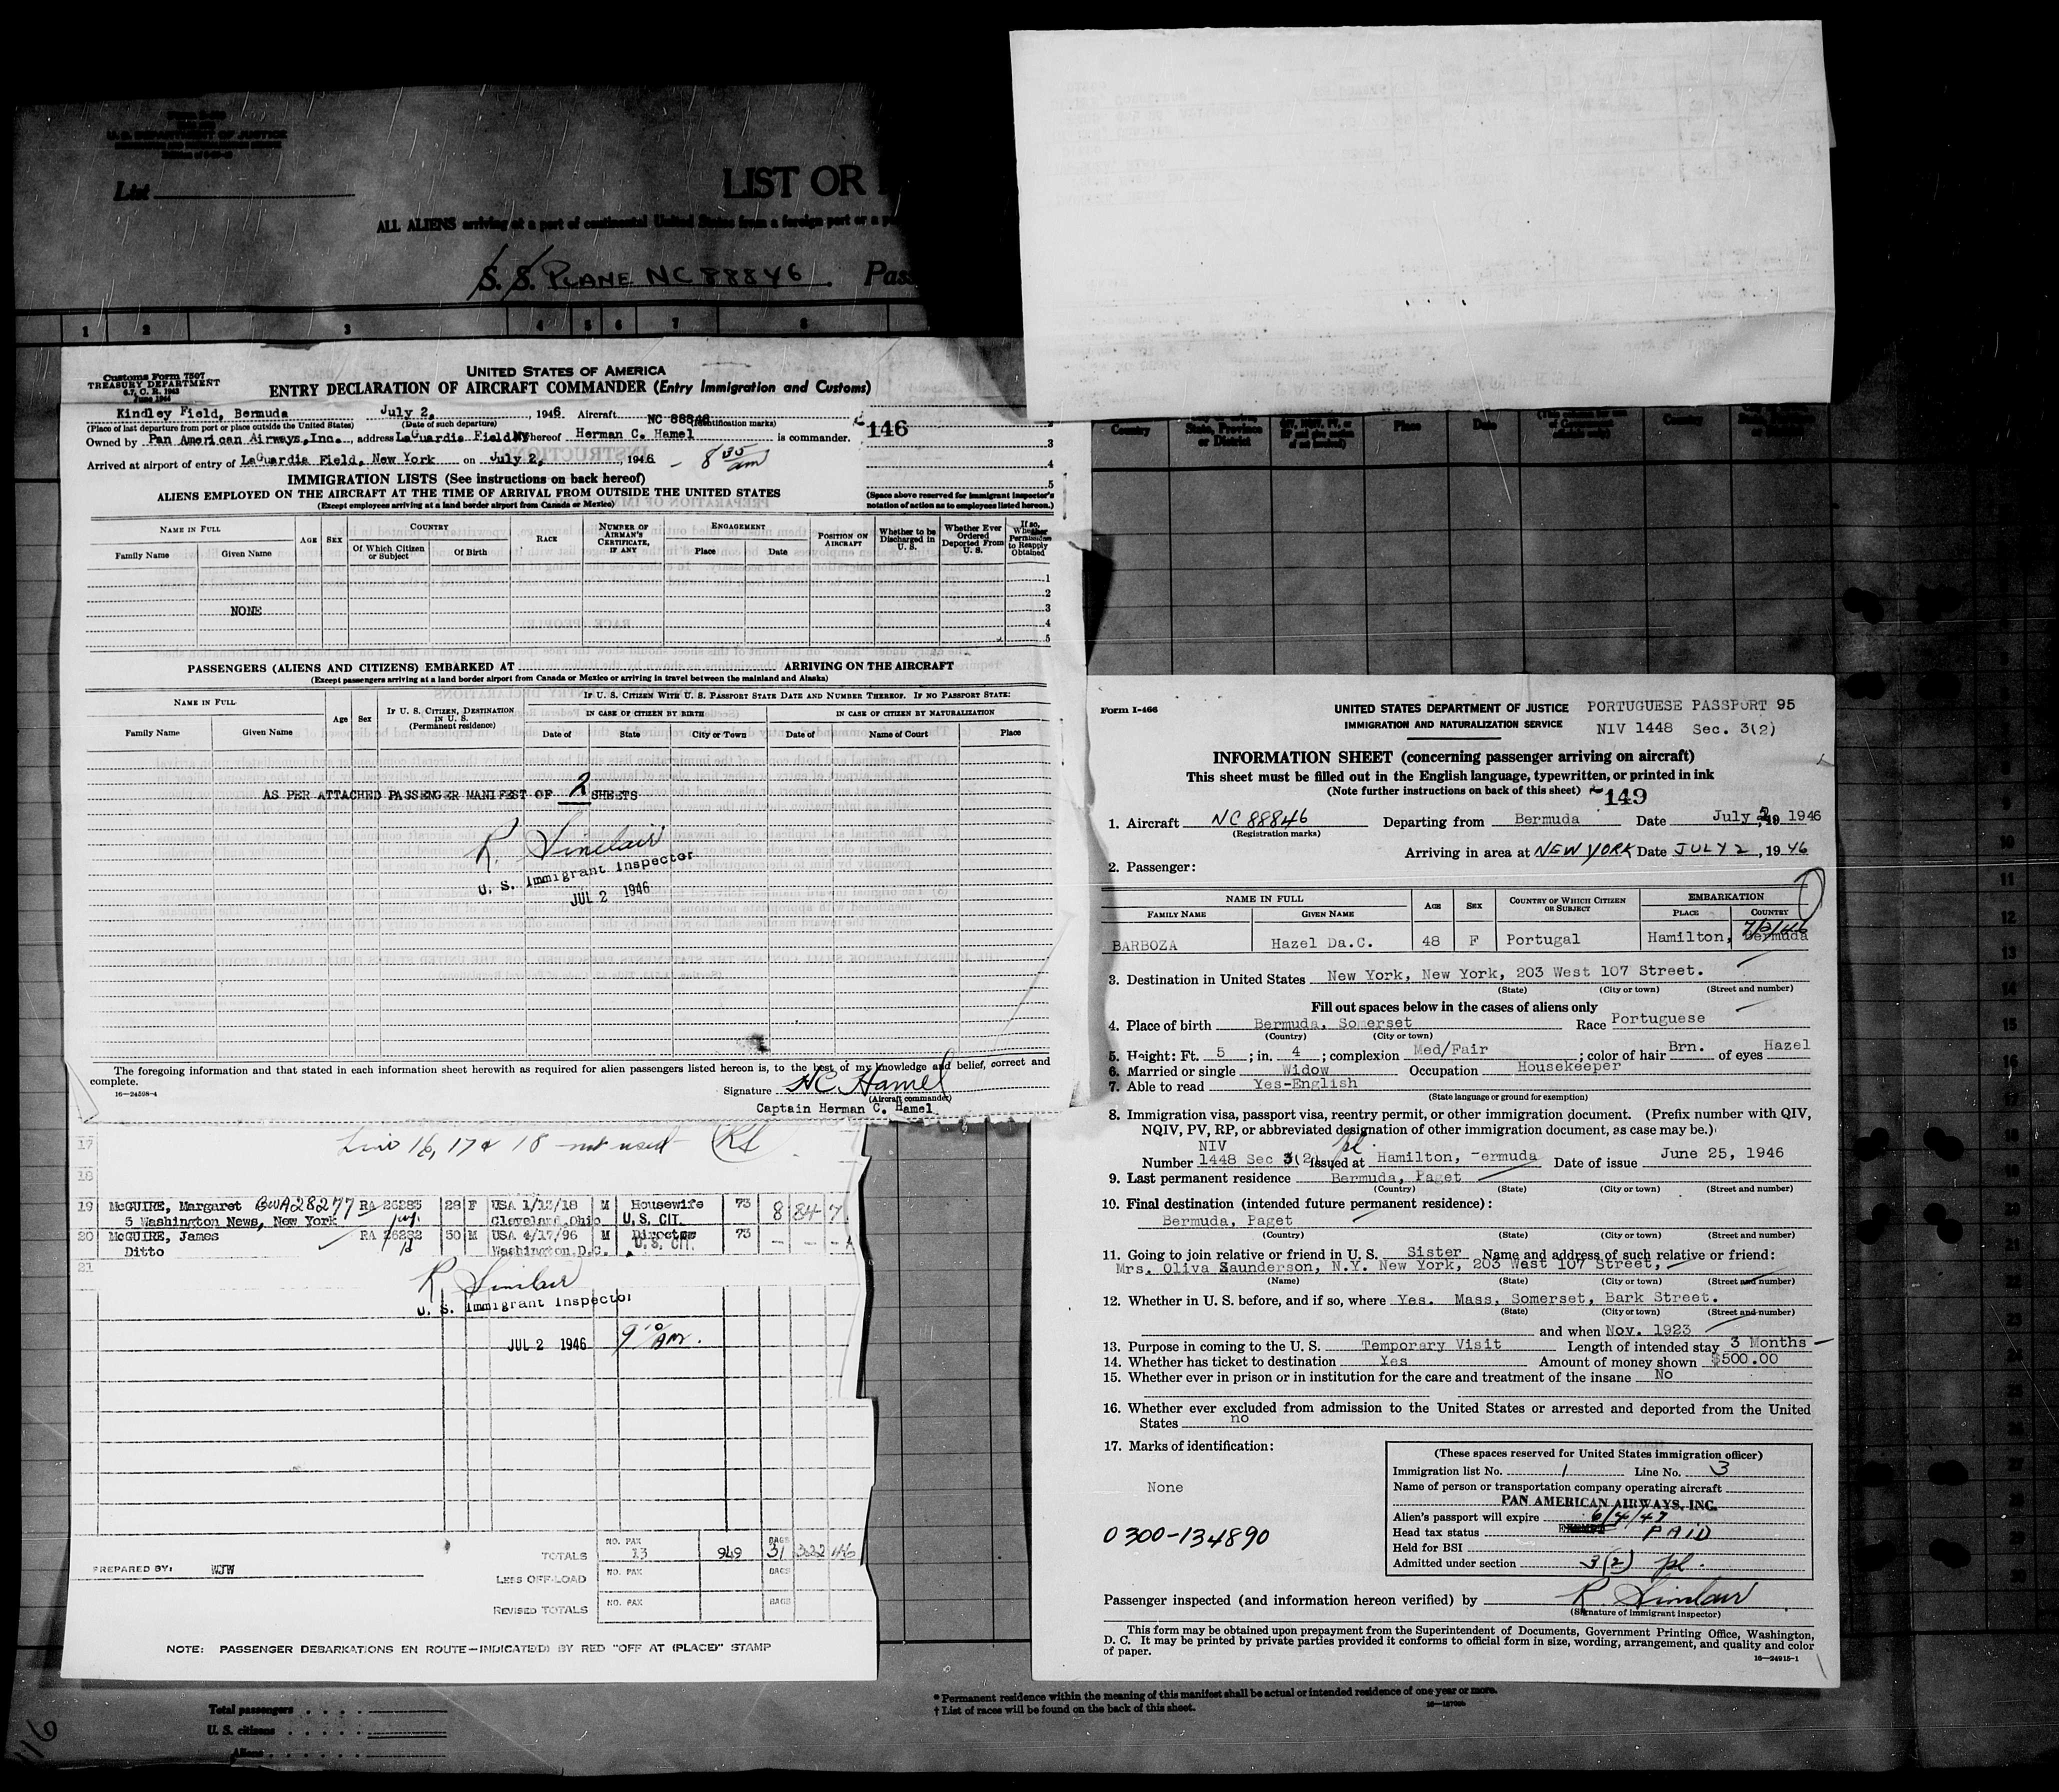 U. S. DEPARTMENT OF JUSTICE
List
LIST OR
ALL ALIENS arriving at a port of continental United States from a foreign port or a p
S. S. PLANE NC 88846 . Pas
1 2 3 4 5 6 7 8
Customs Form 7507
TREASURY DEPARTMENT
June 1944
UNITED STATES OF AMERICA
ENTRY DECLARATION OF AIRCRAFT COMMANDER (Entry Immigration and Customs)
Kindley Field, Bermuda July 2, , 1946. Aircraft NC 88846
(Place of last departure from port or place outside the United States) (Date of such departure) (Identification marks)
Owned by Pan American Airways, Inc., address LaGuardia Field, NY whereof Herman C. Hamel is commander.
146
Arrived at airport of entry of LaGuardia Field, New York on July 2, , 1946 - 8 35 am
IMMIGRATION LISTS (See instructions on back hereof)
ALIENS EMPLOYED ON THE AIRCRAFT AT THE TIME OF ARRIVAL FROM OUTSIDE THE UNITED STATES
(Except employees arriving at a land border airport from Canada or Mexico)
3
4
5
(Space above reserved for immigrant inspector's notation of action as to employees listed hereon.)
NAME IN FULL AGE SEX COUNTRY RACE NUMBER OF AIRMAN'S CERTIFICATE, IF ANY ENGAGEMENT POSITION ON AIRCRAFT Whether to be Discharged in U. S. Whether Ever Ordered Deported From U. S. If so, Whether Permission to Reapply Obtained
Family Name Given Name Of Which Citizen or Subject Of Birth Place Date
1
2
NONE 3
4
5
PASSENGERS (ALIENS AND CITIZENS) EMBARKED AT ARRIVING ON THE AIRCRAFT
(Except passengers arriving at a land border airport from Canada or Mexico or arriving in travel between the mainland and Alaska)
NAME IN FULL Age Sex IF U. S. CITIZEN, DESTINATION IN U. S. (Permanent residence) IF U. S. CITIZEN WITH U. S. PASSPORT STATE DATE AND NUMBER THEREOF. IF NO PASSPORT STATE:
IN CASE OF CITIZEN BY BIRTH IN CASE OF CITIZEN BY NATURALIZATION
Family Name Given Name Date of State City or Town Date of Name of Court Place
AS PER ATTACHED PASSENGER MANIFEST OF 2 SHEETS
R. Sinclair
U. S. Immigrant Inspector
JUL 2 1946
The foregoing information and that stated in each information sheet herewith as required for alien passengers listed hereon is, to the best of my knowledge and belief, correct and
complete.
16—24598-4
Signature HC Hamel
(Aircraft commander)
Captain Herman C. Hamel
17 Line 16, 17 & 18 not used RS
18
19 McGUIRE, Margaret GWA28277 RA 26283 28 F USA 1/13/18 M Housewife 73 8 84 7
3 Washington News, New York Cleveland, Ohio U.S. CIT.
20 McGUIRE, James RA 26282 50 M USA 4/17/96 M Director 73 - - -
Ditto Washington, D.C. U.S. CIT.
21
R Sinclair
U. S. Immigrant Inspector
JUL 2 1946 9 10 AM.
TOTALS NO. PAX 13 949 BAGS 31 322 46
PREPARED BY: WJW
LESS OFF-LOAD NO. PAX BAGS
REVISED TOTALS NO. PAX BAGS
NOTE: PASSENGER DEBARKATIONS EN ROUTE—INDICATE(D) BY RED "OFF AT (PLACE)" STAMP
Total passengers
U. S. citizens
Aliens
Country State, Province or District Place Date Country
Form I-466
UNITED STATES DEPARTMENT OF JUSTICE PORTUGUESE PASSPORT 95
IMMIGRATION AND NATURALIZATION SERVICE NIV 1448 Sec. 3(2)
INFORMATION SHEET (concerning passenger arriving on aircraft)
This sheet must be filled out in the English language, typewritten, or printed in ink
(Note further instructions on back of this sheet) 149
1. Aircraft NC 88846 Departing from Bermuda Date July 2, 1946
(Registration marks)
Arriving in area at NEW YORK Date JULY 2 , 19 46
2. Passenger:
NAME IN FULL AGE SEX COUNTRY OF WHICH CITIZEN OR SUBJECT EMBARKATION
FAMILY NAME GIVEN NAME PLACE COUNTRY
7/2/46
BARBOZA Hazel Da.C. 48 F Portugal Hamilton, Bermuda
3. Destination in United States New York, New York, 203 West 107 Street.
(State) (City or town) (Street and number)
Fill out spaces below in the cases of aliens only
4. Place of birth Bermuda, Somerset Race Portuguese
(Country) (City or town)
5. Height: Ft. 5 ; in. 4 ; complexion Med/Fair ; color of hair Brn. of eyes Hazel
6. Married or single Widow Occupation Housekeeper
7. Able to read Yes-English
(State language or ground for exemption)
8. Immigration visa, passport visa, reentry permit, or other immigration document. (Prefix number with QIV,
NQIV, PV, RP, or abbreviated designation of other immigration document, as case may be.)
NIV pl.
Number 1448 Sec 3(2) issued at Hamilton, -ermuda Date of issue June 25, 1946
9. Last permanent residence Bermuda, Paget
(Country) (State) (City or town) (Street and number)
10. Final destination (intended future permanent residence):
Bermuda, Paget
(Country) (State) (City or town) (Street and number)
11. Going to join relative or friend in U. S. Sister Name and address of such relative or friend:
Mrs. Oliva Saunderson, N.Y. New York, 203 West 107 Street,
(Name) (State) (City or town) (Street and number)
12. Whether in U. S. before, and if so, where Yes. Mass, Somerset, Bark Street.
(State) (City or town) (Street and number)
and when Nov. 1923
13. Purpose in coming to the U. S. Temporary Visit Length of intended stay 3 Months
14. Whether has ticket to destination Yes Amount of money shown $500.00
15. Whether ever in prison or in institution for the care and treatment of the insane No
16. Whether ever excluded from admission to the United States or arrested and deported from the United
States no
17. Marks of identification:
None
0300-134890
(These spaces reserved for United States immigration officer)
Immigration list No. 1 Line No. 3
Name of person or transportation company operating aircraft
PAN AMERICAN AIRWAYS, INC.
Alien's passport will expire 6/4/47
Head tax status PAID
Held for BSI
Admitted under section 3(2) pl.
Passenger inspected (and information hereon verified) by R. Sinclair
(Signature of immigrant inspector)
This form may be obtained upon prepayment from the Superintendent of Documents, Government Printing Office, Washington,
D. C. It may be printed by private parties provided it conforms to official form in size, wording, arrangement, and quality and color
of paper.
16—24915-1
* Permanent residence within the meaning of this manifest shall be actual or intended residence of one year or more.
† List of races will be found on the back of this sheet.